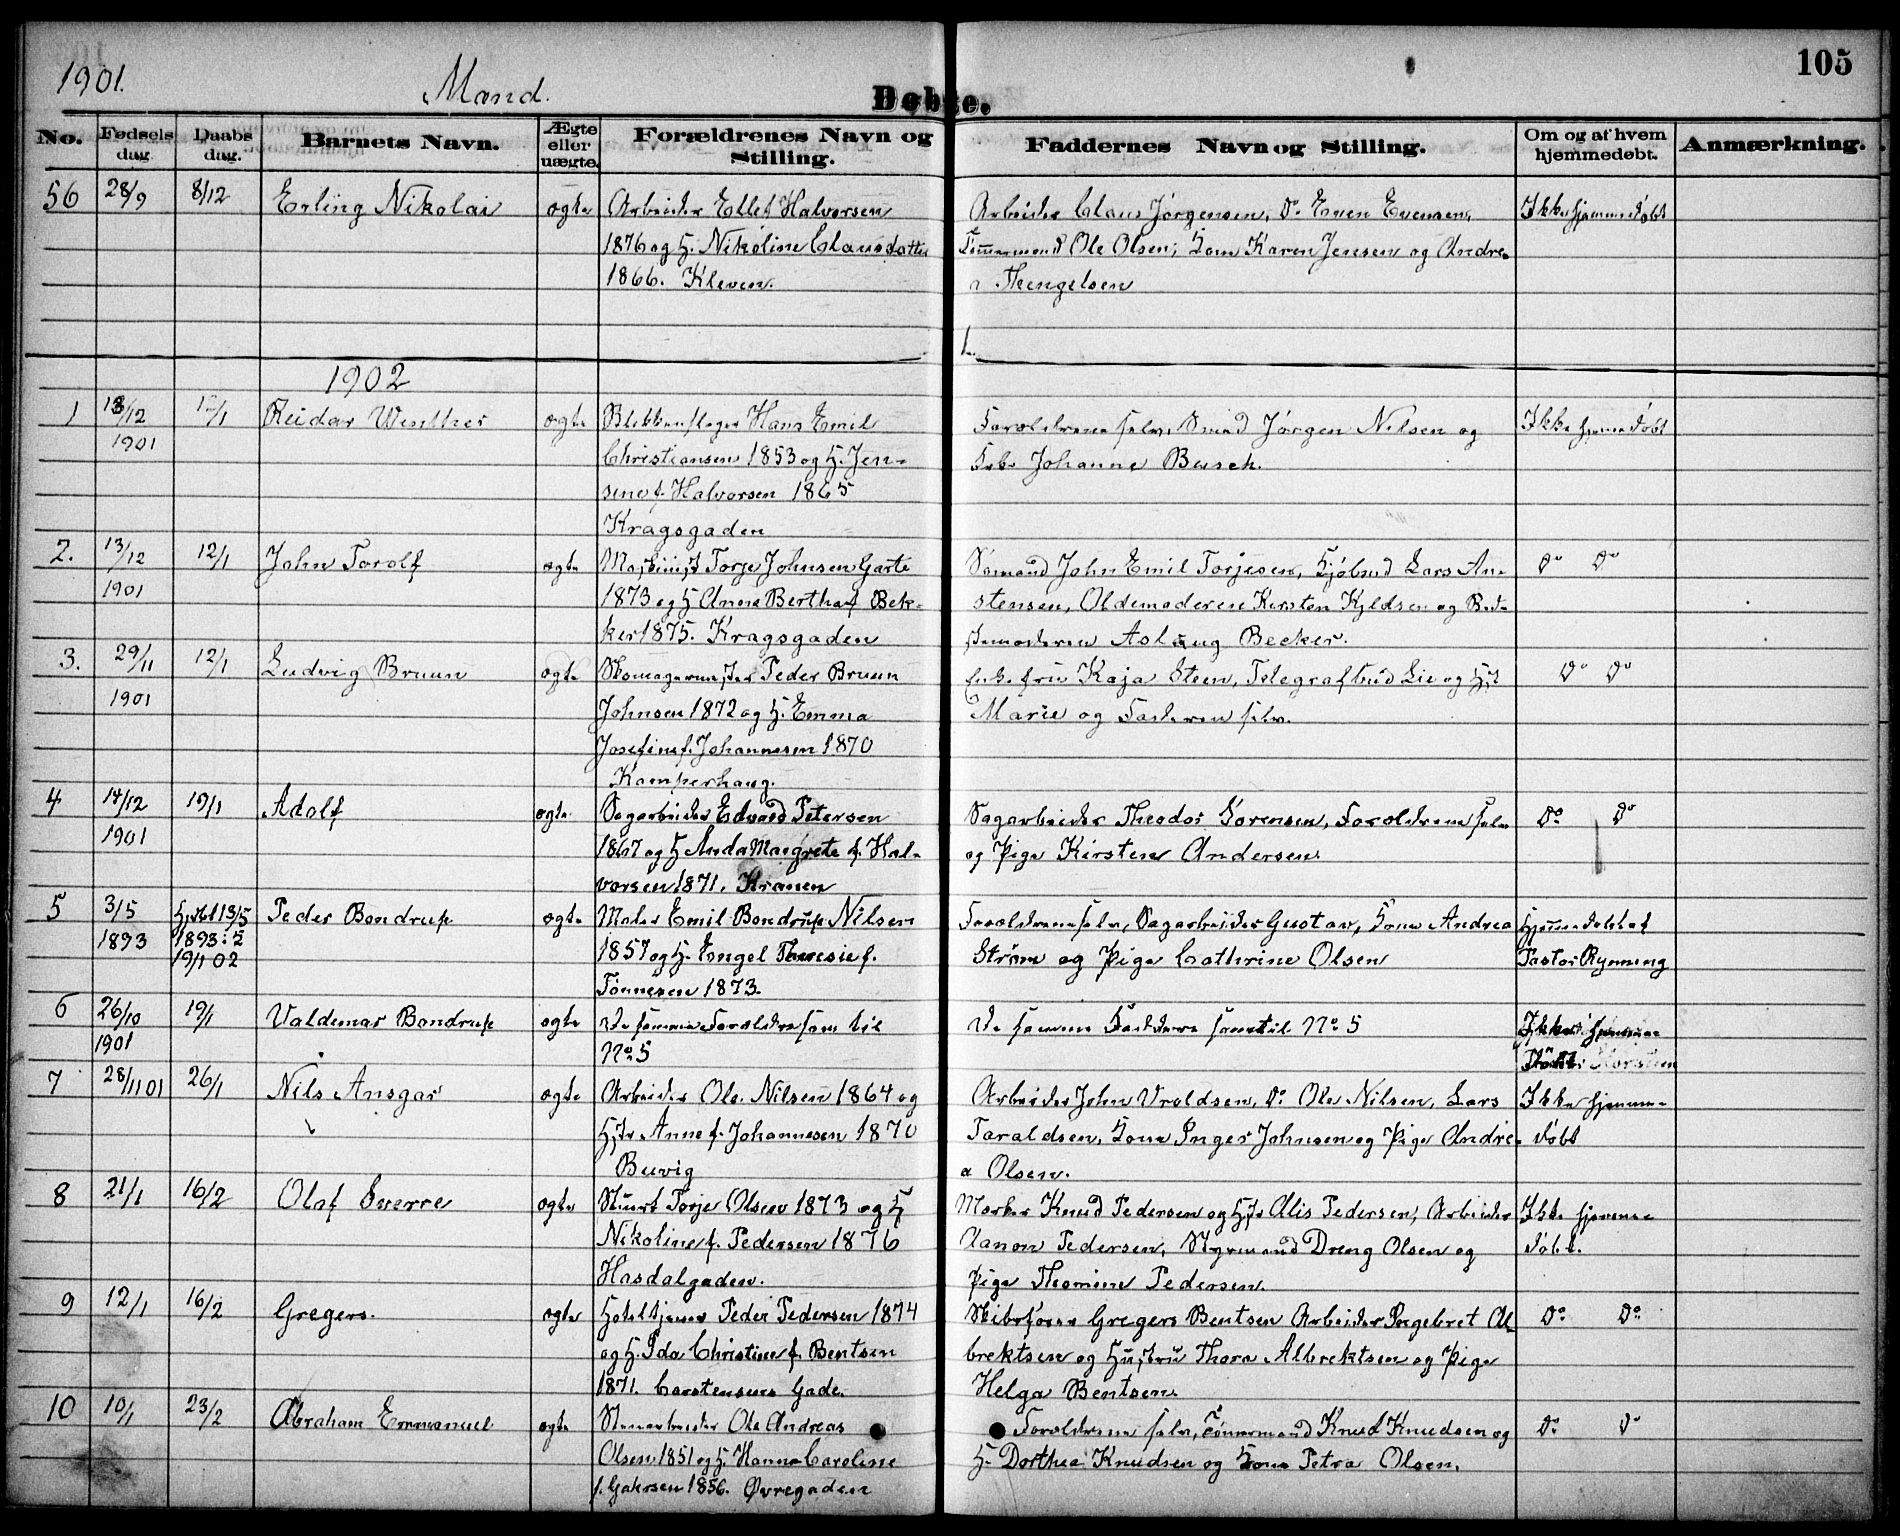 1901. Mænd. Døbte. 105
No. Fødselsdag. Daabsdag. Barnets Navn. Ægte eller uægte. Forældrenes Navn og Stilling. Faddernes Navn og Stilling. Om og af hvem hjemmedøbt. Anmærkning.
56 28/9 8/12 Erling Nikolai ægte Arbeider Ellef Halvorsen Arbeider Claus Jørgensen, Do Even Evensen, Ikke hjemmedøbt
1876 og H. Nikoline Clausdatter Tømmermand Ole Olsen; Kone Karen Jensen og Andre-
1866. Kleven. a Thengelsen
1902
1 13/12 12/1 Reidar Wenther ægte Blikkenslager Hans Emil Forældrene selv, Smed Jørgen Nilsen og Ikke hjemmedøbt
1901 Christiansen 1853 og H. Jen- Frk. Johanne Busch.
sine f. Halvorsen 1865
Kragsgaden
2. 13/12 12/1 John Torolf ægte Maskinist Torje Johnsen Garte Sømand John Emil Torjesen, Lars An- Do Do
1901 1873 og H Anne Bertha f. Bek- stensen, Oldemoderen Kirsten Kjeldsen og Bed-
ker 1875. Kragsgaden stemoderen Aslaug Becker.
3. 29/11 12/1 Ludvig Bruun ægte Skomagermester Peder Bruun Enkefru Kaja Steen, Telegrafbud Lie og Do Do
1901 Johnsen 1872 og H. Emma Marie og Faderen selv.
Josefine f. Johannesen 1870
Kamperhaug.
4 14/12 19/1 Adolf ægte Sagarbeider Edvard Petersen Sagarbeider Theodor Sørensen, Forældrene selv Do Do
1901 1867 og H Anda Margrete f. Hal- og Pige Kirsten Andersen.
vorsen 1871. Kranen
5 3/5 Hjdbt 13/5 Peder Bondrup ægte Maler Emil Bondrup Nilsen Forældrene selv, Sagarbeider Gustav, Kone Andrea Hjemmedøbt af
1893 1893: 2 1857 og H. Engel Theresie f. Strøm og Pige Cathrine Olsen Pastor Rynning
19/1 02 Tønnesen 1873.
6 26/10 19/1 Valdemar Bondrup ægte De samme Forældre som til De samme Faddere som til No 5 Ikke hjemme-
1901 No 5
7 28/11 01 26/1 Nils Ansgar ægte Arbeider Ole Nilsen 1864 og Arbeider John Vroldsen, Do Ole Nilsen, Lars Ikke hjemme-
Hstr Anne f. Johannesen 1870 Taraldsen, Kone Inger Johnsen og Pige Andre- døbt
Buvig a Olsen.
8 21/1 16/2 Olaf Sverre ægte Stuert Torje Olsen 1873 og H Mærker Knud Pedersen og Hstr Alis Pedersen, Arbeider Ikke hjemme-
Nikoline f. Pedersen 1876 Aanon Pedersen, Styrmand Dreng Olsen og døbt.
Hasdalgaden. Pige Thomine Pedersen.
9 12/1 16/2 Gregers. ægte Hoteltjener Peder Pedersen 1874 Skibsfører Gregers Bentsen Arbeider Ingebret Al- Do Do
og H. Ida Christine f. Bentsen brektsen og Hustru Thora Albrektsen og Pige
1871. Carstensens Gade. Helga Bentsen.
10 10/1 23/2 Abraham Emmanuel ægte Stenarbeider Ole Andreas Forældrene selv, Tømmermand Knut Knudsen og Do Do
Olsen 1851 og H. Hanna Caroline H. Dorthea Knudsen og Kone Petra Olsen.
f. 1856. Øvregaden